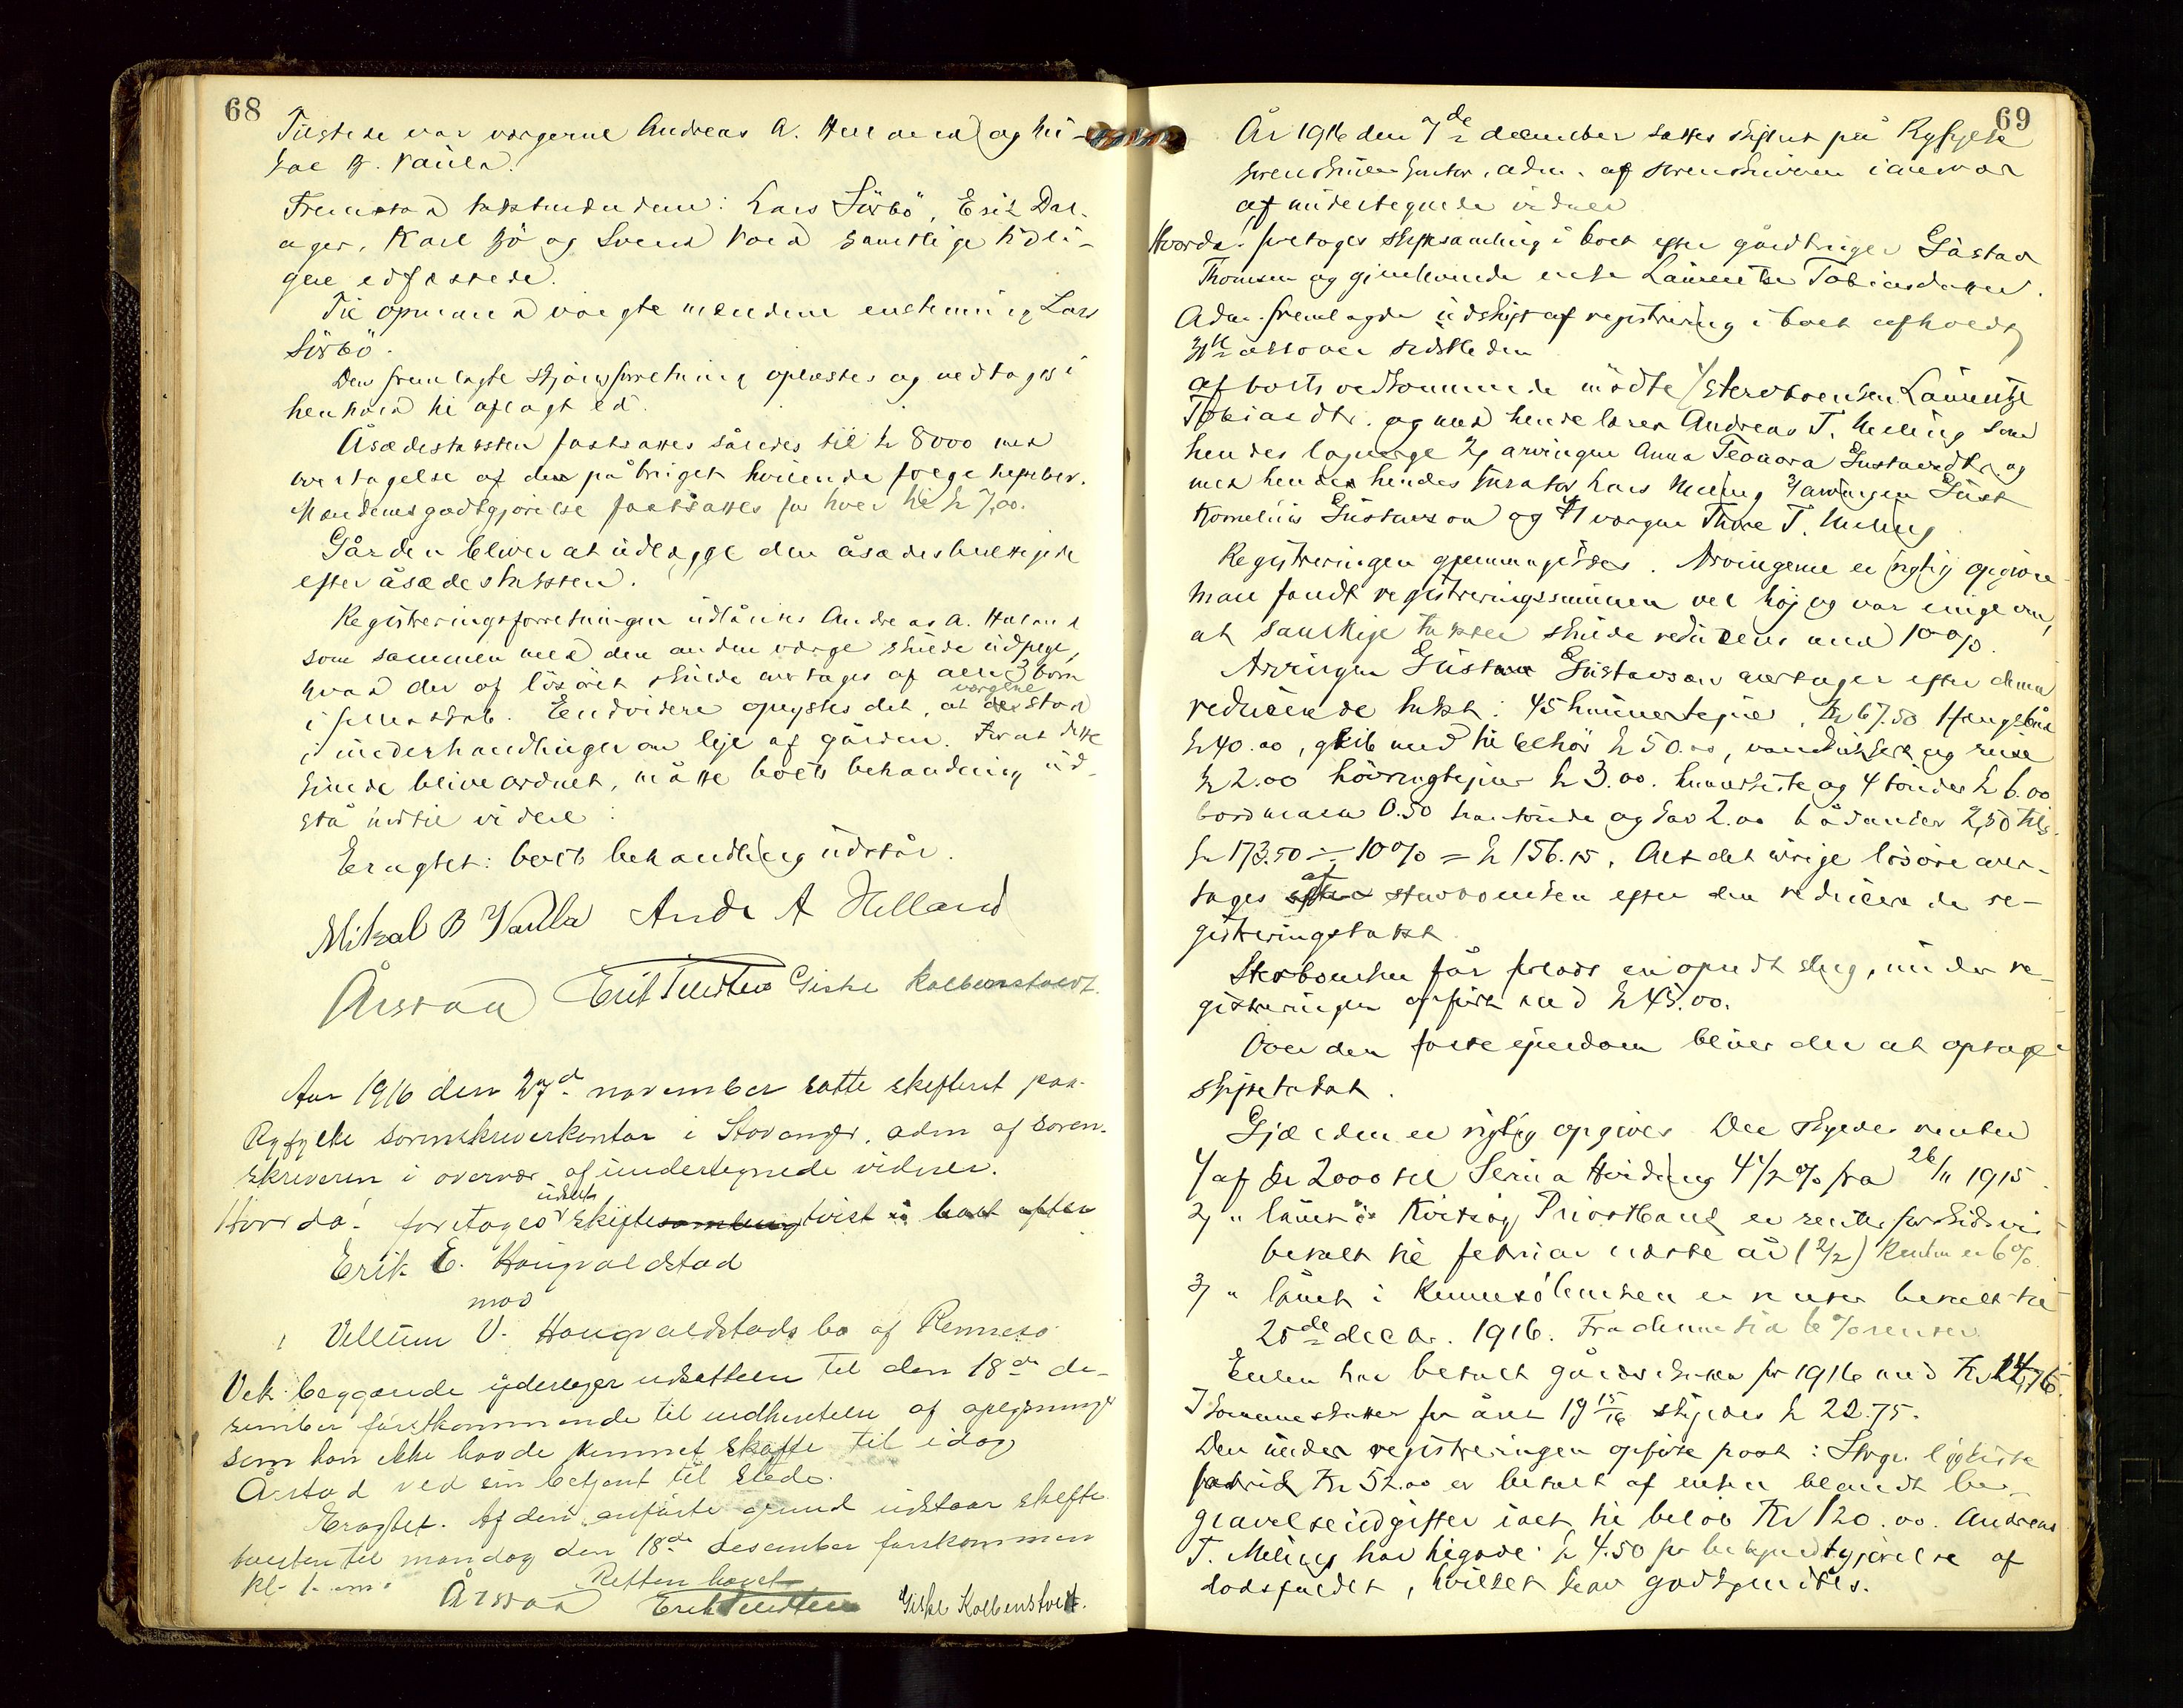 68
Tilstede var vergerne Andreas A. Helland og Mi-
kal B. Vaula.
Fremstod takstmændene: Lars Sörbö, Erik Dal-
ager, Karl Bö og Svend Voll samtlige tidli-
gere edfæstede.
Til opmand valgte mændene enstemmig Lars
Sörbö.
Den fremlagte skjönsforretning oplæstes og vedtoges i
henhold til aflagt ed.
Åsædestaksten fastsattes således til kr 8000 med
overtagelse af den på bruget hvilende
Mændenes godtgjörelse fastsattes for hver til kr 7,00.
Gården bliver at udlægge den åsædesberettigede
efter åsædestaksten.
Registreringsforretningen udlånes Andreas A. Helland
som sammen med den anden verge skulde udpege,
hvad der af lösöret skulde overtages af alle 3 börn
i fællesskab. Endvidere oplystes det, at vergerne stod
i underhandlinger om leje af gården. For at dette
kunde blive ordnet, måtte boets behandling ud-
stå indtil videre.
Eragtet: boets behandling udstår.
Mikal B Vaula Andr A Helland
Årstad Erik Giske Kolbenstvedt.
Aar 1916 den 27de november sattes skifteret paa
Ryfylke sorenskriverkontor i Stavanger, adm af soren-
skriveren i overvær af undertegnede vidner.
Hvorda: foretages udsat skiftetvist
Erik E. Haugvaldstad
mod
Villum V. Haugvaldstads bo af Rennesö
Vek. begjærede yderligere udsættelse til den 18de de-
sember förstkommende til indhentelse af oplysninger
som han ikke havde kunnet skaffe til idag
Årstad ved sin betjent til stede.
Eragtet. Af den anförte grund udstaar skifte-
tvisten til mandag den 18de desember förstkommen
kl. 1. em. Retten hævet
Årstad Erik Giske Kolbenstvedt.
69
År 1916 den 7de december sattes skifteret på Ryfylke
sorenskriverkontor, adm. af sorenskriveren i overvær
af undertegnede vidner
Hvorda: foretoges skiftesamling i boet efter gårdbruger Gustav
Thomsen og gjenlevende enke Lauritze Tobiasdatter.
Adm. fremlagde udskrift af registrering i boet afholdt
31te oktober sidstleden
af boets vedkommende mödte 1/ sterboenken Lauritze
Tobiasdtr. og med hende lærer Andreas T. Meling som
hendes lagverge 2/ arvingen Anna Teodora Gustavsdtr. og
med hende hendes kurator Lars Meling 3/ arvingen Gust
Kornelius Gustavson og 4/ vergen Thore T. Meling
Registreringen gjennemgikkes. Arvingerne er rigtig opgivne
Man fandt registreringssummen vel höj og var enige om,
at samtlige takster skulde reduceres med 10%.
Arvingen Gustav Gustavson overtager efter denne
reducerede takst: 45 hummertejner, Kr 67.50
kr 40.00, med tilbehör kr 50.00,
kr 2.00 kr 3.00. hummerkiste og 4 tönder kr 6.00
0.50 og 2.00 2,50 tils.
kr 173.50 ÷ 10% = kr 156.15. Alt det övrige lösöre over-
tages af sterboenken efter den reducerede re-
gistreringstakst
Sterboenken får forlods en opredt seng, under re-
gistreringen opfört med kr 45.00.
Over den faste ejendom bliver der at optage
skiftetakst.
Gjælden er rigtig opgivet. Der skyldes renter
1/ af kr 2000 til Serina Hviding 4 1/2 % fra 26/11 1915.
2/ " lånet i Kvitsöy Privatbank er renter forskudsvis
betalt til februar næste år (2/2) Renten er 6%.
3/ " lånet i Rennesöbanken er renter betalt til
20de decbr. 1916. Fra denne tid 6% renter.
Enken har betalt gårdsskatten for 1916 med Kr 14,76.
I kommuneskatter for året 19 15/16 skyldes kr 22.75.
Den under registreringen opförte post: Stvgr. ligkiste
fabrik Kr 52.00 er betalt af enken blandt be-
gravelseudgifter ialt til belöb Kr 120.00. Andreas
T. Meling har tilgode kr 4.50 for bekjendtgjörelse af
dödsfaldet, hvilket blev godkjendtes.